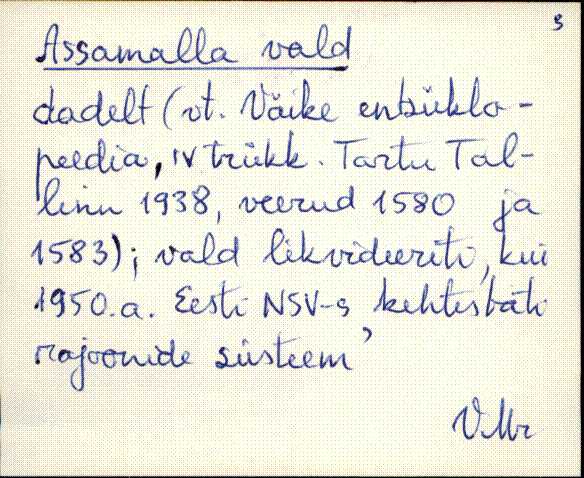 3
Assamalla vald
dadelt (vt. Väike entsüklo-
peedia, IV trükk. Tartu Tal-
linn 1938, veerud 1580 ja
1583); vald likvideeriti, kui
1950.a. Eesti NSV-s kehtestati
rajoonide süsteem
VMr